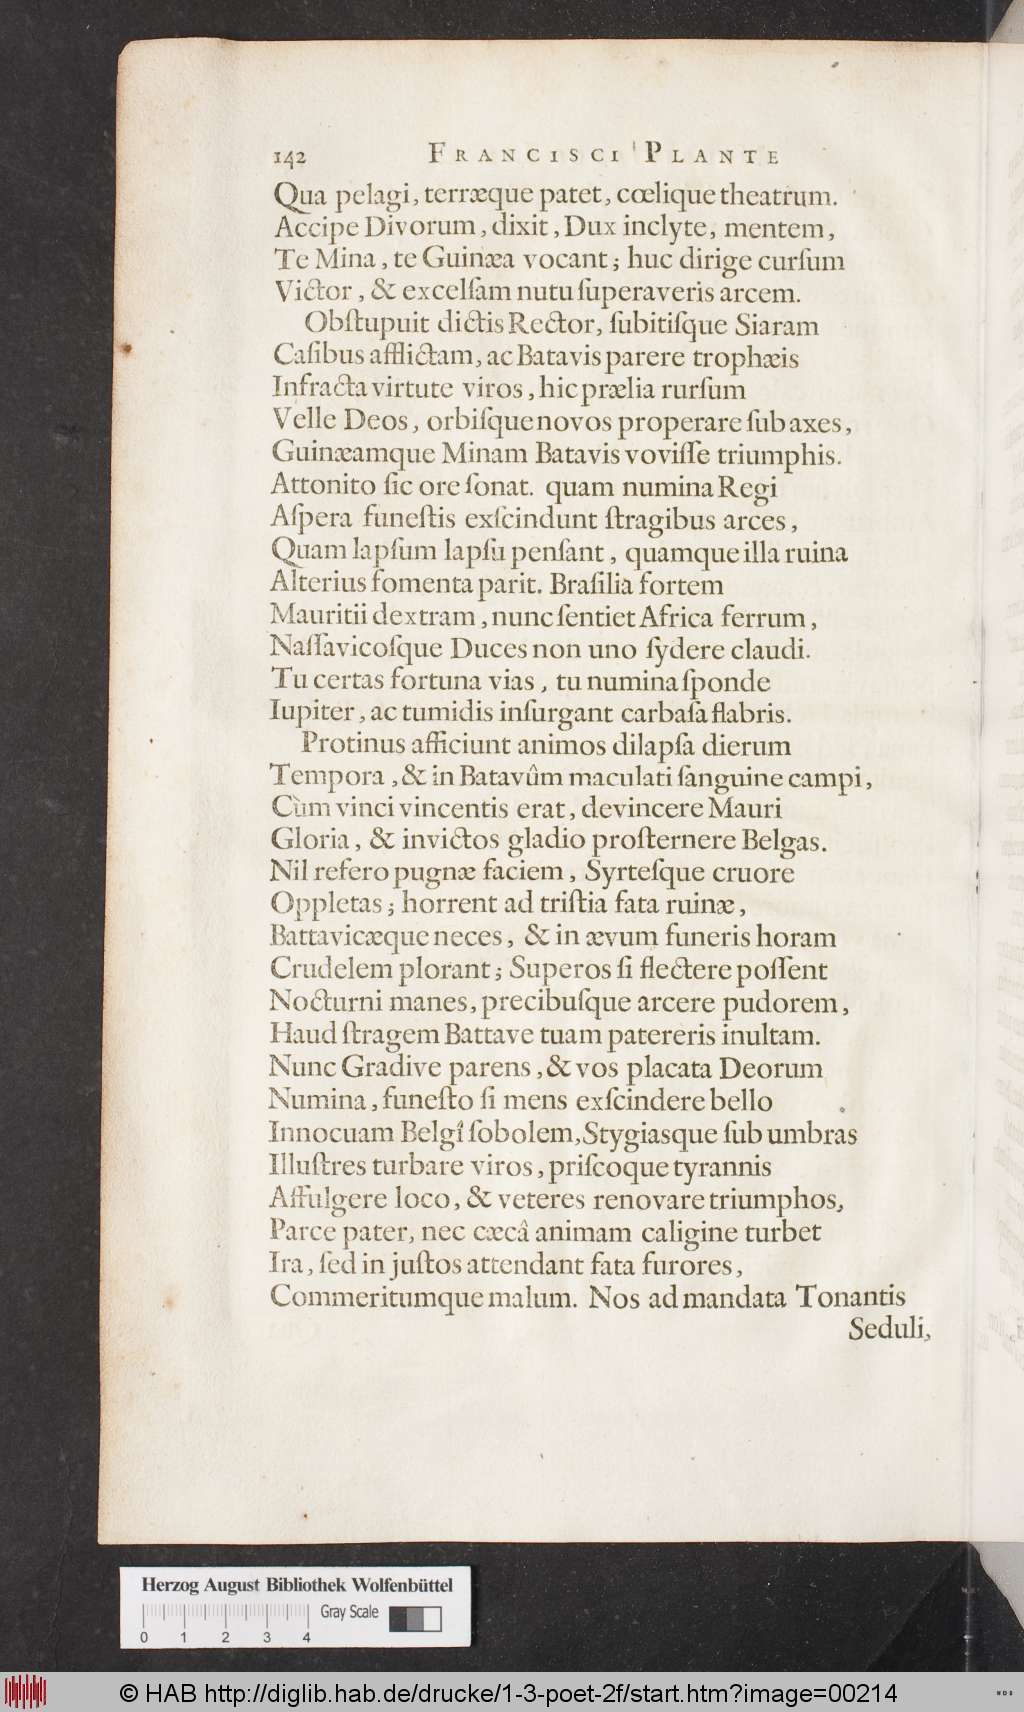 142 FRANCISCI PLANTE
Qua pelagi, terræque patet, cœlique theatrum.
Accipe Divorum, dixit, Dux inclyte, mentem,
Te Mina, te Guinæa vocant; huc dirige curſum
Victor, & excelſam nutu ſuperaveris arcem.
Obſtupuit dictis Rector, ſubitiſque Siaram
Caſibus afflictam, ac Batavis parere trophæis
Infracta virtute viros, hic prælia rurſum
Velle Deos, orbiſque novos properare ſub axes,
Guinæamque Minam Batavis voviſſe triumphis.
Attonito ſic ore ſonat. quam numina Regi
Aſpera funeſtis exſcindunt ſtragibus arces,
Quam lapſum lapſu penſant, quamque illa ruina
Alterius fomenta parit. Braſilia fortem
Mauritii dextram, nunc ſentiet Africa ferrum,
Naſſavicoſque Duces non uno ſydere claudi.
Tu certas fortuna vias, tu numina ſponde
Iupiter, ac tumidis inſurgant carbaſa flabris.
Protinus afficiunt animos dilapſa dierum
Tempora, & in Batavûm maculati ſanguine campi,
Cùm vinci vincentis erat, devincere Mauri
Gloria, & invictos gladio proſternere Belgas.
Nil refero pugnæ faciem, Syrteſque cruore
Oppletas; horrent ad triſtia fata ruinæ,
Battavicæque neces, & in ævum funeris horam
Crudelem plorant; Superos ſi flectere poſſent
Nocturni manes, precibuſque arcere pudorem,
Haud ſtragem Battave tuam patereris inultam.
Nunc Gradive parens, & vos placata Deorum
Numina, funeſto ſi mens exſcindere bello
Innocuam Belgî ſobolem, Stygiasque ſub umbras
Illuſtres turbare viros, priſcoque tyrannis
Affulgere loco, & veteres renovare triumphos,
Parce pater, nec cæcâ animam caligine turbet
Ira, ſed in juſtos attendant fata furores,
Commeritumque malum. Nos ad mandata Tonantis
Seduli,
Herzog August Bibliothek Wolfenbüttel
Gray Scale
0 1 2 3 4
© HAB http://diglib.hab.de/drucke/1-3-poet-2f/start.htm?image=00214